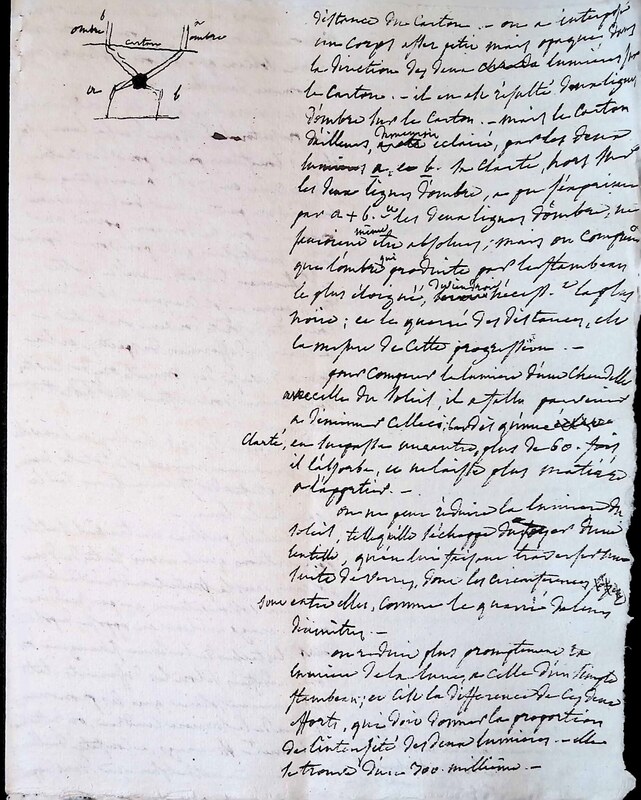 b
ombre
a
ombre
carton
a
b
distance du carton. - on a interposé
un corps assez petit mais opaque dans
la direction des deux lumières sur
le carton. - il en est résulté deux lignes
d'ombre sur le carton. - mais le carton
d'ailleurs, éclairé, par les deux
lumières a, et b. sa clarté, hors sur
les deux lignes d'ombre, a pu s'exprimer
par a + b. les deux lignes d'ombre, ne
pouvoient même être absolues; mais on comprend
que l'ombre produite par le flambeau
le plus éloigné, étoit la plus
noire; et le quarré des distances, est
la mesure de cette progression. -
pour comparer la lumière d'une chandelle
avec celle du soleil, il a fallu parvenir
a diminuer celle ci; car dès qu'une
clarté, en surpasse une autre, plus de 60. fois
il l'absorbe, et ne laisse plus matière
a l'apprécier. -
on ne peut réduire la lumière du
soleil, telle qu'elle s'échappe du foyer d'une
lentille, qu'en lui faisant traverser une
suite de verres, dont les circonférences
sont entre elles, comme le quarré de leurs
diamètres. -
on réduit plus promptement la
lumière de la lune, a celle d'un simple
flambeau; et c'est la différence de ces deux
efforts, qui doit donner la proportion
de l'intensité des deux lumières. - elle
se trouve d'une 300. millième. -